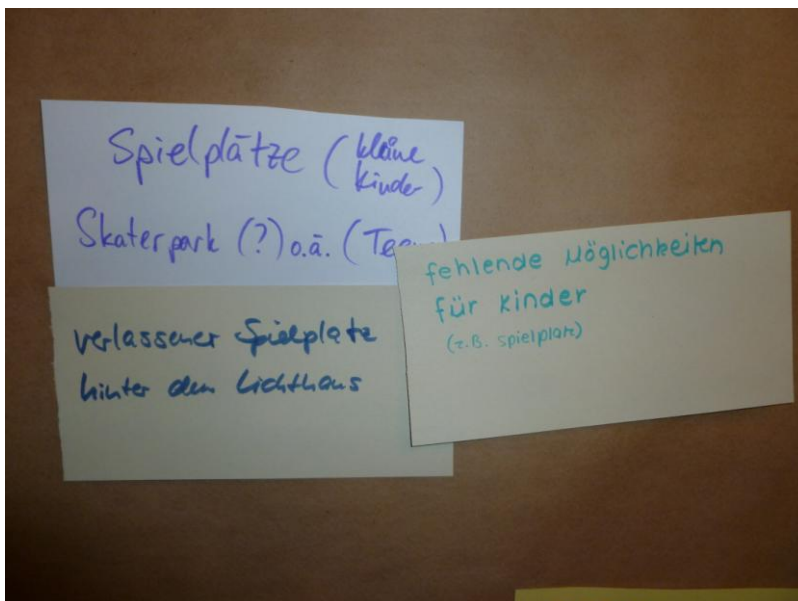 Spielplätze (kleine
Kinder)
Skaterpark (?) o.ä. (
verlassener Spielplatz
hinter dem Lichthaus
fehlende Möglichkeiten
für Kinder
(z.B. Spielplatz)